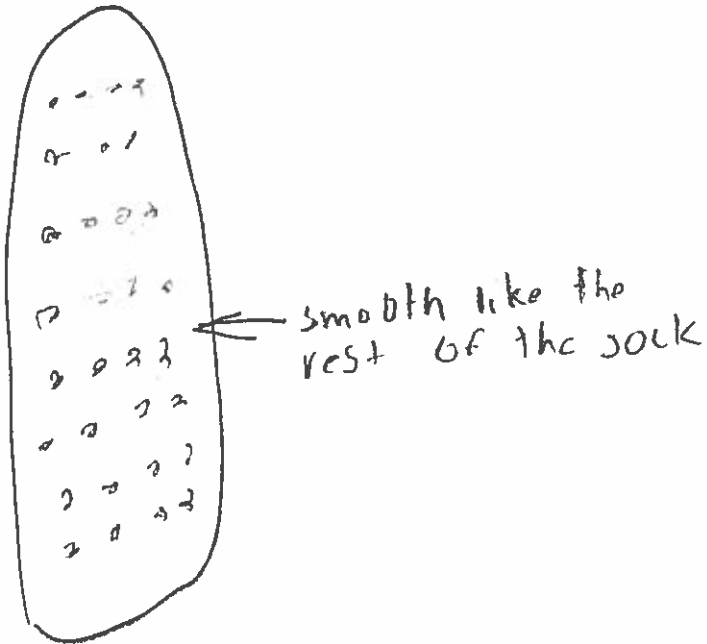 smooth like the
rest of the sock